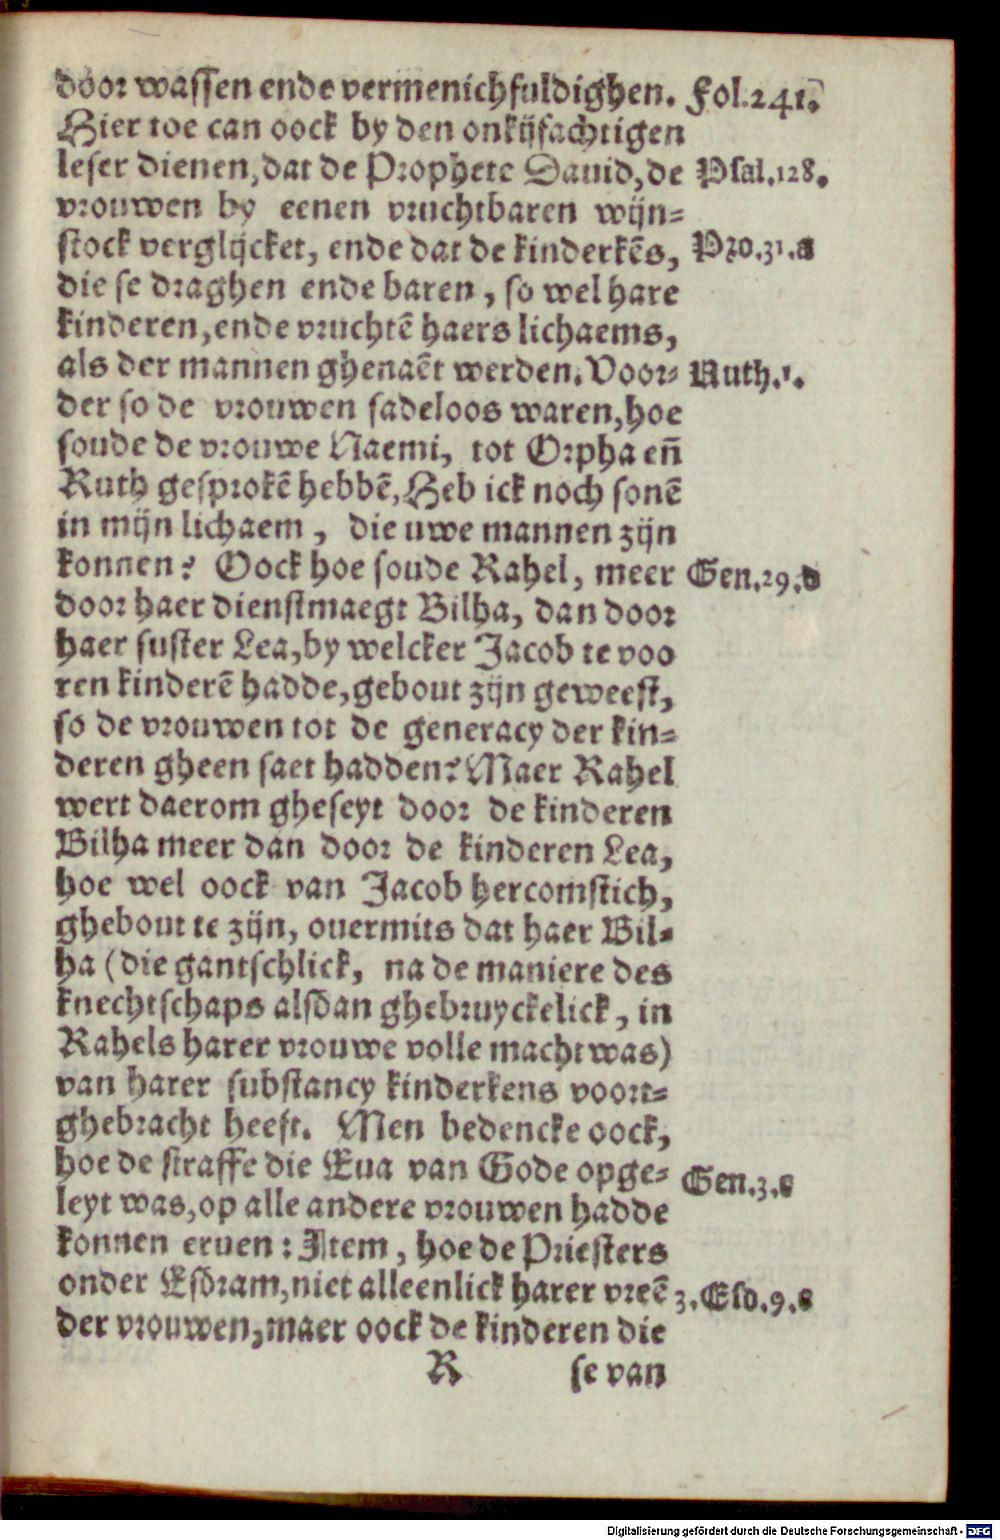 door wassen ende vermenichfuldighen. Fol.241.
Hier toe can oock by den onkijfachtigen
leser dienen, dat de Prophete Dauid, de Psal.128.
vrouwen by eenen vruchtbaren wijn-
stock verglijcket, ende dat de kinderkēs, Pro.31.a
die se draghen ende baren, so wel hare
kinderen, ende vruchtē haers lichaems,
als der mannen ghenaēt werden. Voor- Ruth.1.
der so de vrouwen sadeloos waren, hoe
soude de vrouwe Naemi, tot Orpha en̄
Ruth gesprokē hebbē, Heb ick noch sonē
in mijn lichaem, die uwe mannen zijn
konnen? Oock hoe soude Rahel, meer Gen.29.d
door haer dienstmaegt Bilha, dan door
haer suster Lea, by welcker Jacob te voo
ren kinderē hadde, gebout zijn geweest,
so de vrouwen tot de generacy der kin-
deren gheen saet hadden? Maer Rahel
wert daerom gheseyt door de kinderen
Bilha meer dan door de kinderen Lea,
hoe wel oock van Jacob hercomstich,
ghebout te zijn, ouermits dat haer Bil-
ha (die gantschlick, na de maniere des
knechtschaps alsdan ghebruyckelick, in
Rahels harer vrouwe volle macht was)
van harer substancy kinderkens voort-
ghebracht heeft. Men bedencke oock,
hoe de straffe die Eua van Gode opge- Gen.3.c
leyt was, op alle andere vrouwen hadde
konnen eruen: Item, hoe de Priesters
onder Esdram, niet alleenlick harer vreē 3.Esd.9.c
der vrouwen, maer oock de kinderen die
R se van
Digitalisierung gefördert durch die Deutsche Forschungsgemeinschaft - DFG